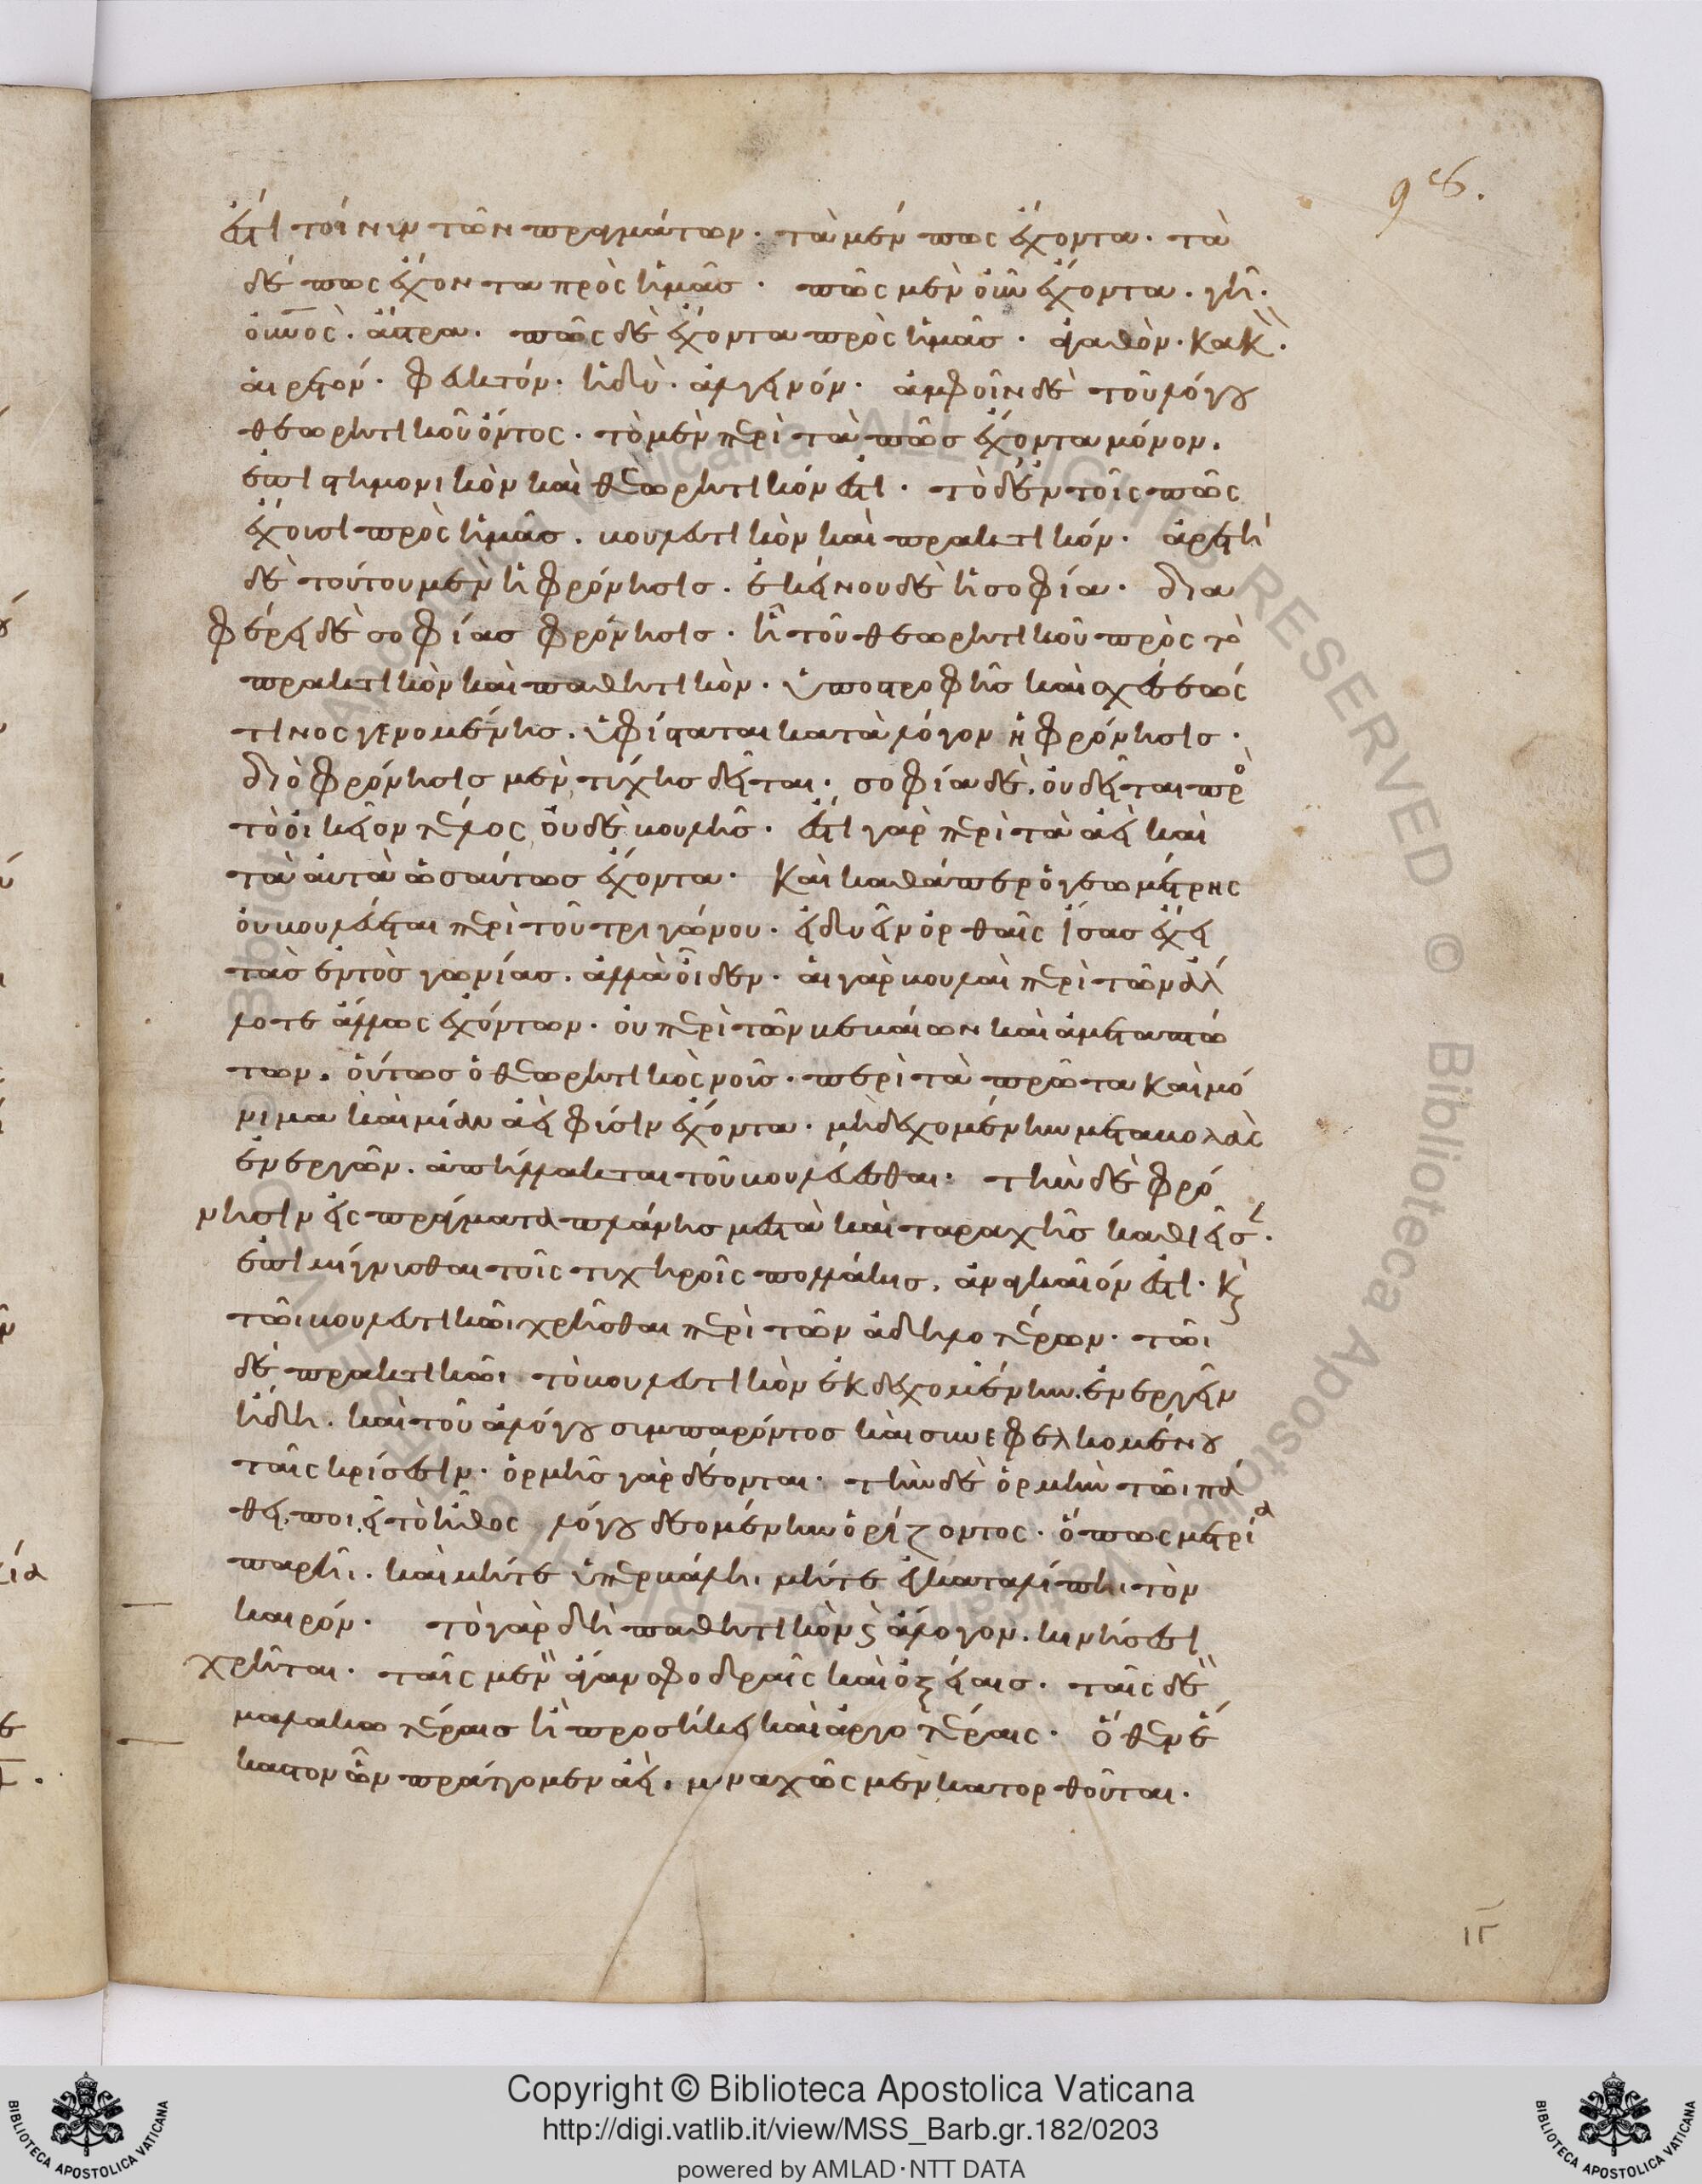 98.
ἐστὶ τοίνυν τῶν πραγμάτων· τὰ μέν πως ἔχοντα· τὰ
δέ πως ἔχοντα πρὸς ἡμᾶσ· πῶς μὲν οὖν ἔχοντα. γῆ.
οὐνος. ἄστρα. πῶς δὲ ἔχοντα πρὸς ἡμᾶσ. ἀγαθὸν. κακ.
αἱρετόν. φευκτόν. ἡδύ. ἀλγεινόν. ἀμφοῖν δὲ τοῦ λόγου
θεωρητικοῦ ὄντος. τὸ μὲν περὶ τὰ πῶσ ἔχοντα μόνον.
ἐπιστημονικὸν καὶ θεωρητικόν ἐστι. τὸ δ' ἐν τοῖς πῶς
ἔχουσι πρὸς ἡμᾶσ. βουλευτικὸν καὶ πρακτικόν. ἀρετὴ
δὲ τούτου μὲν ἡ φρόνησισ. ἐκείνου δὲ ἡ σοφία. δια
φέρει δὲ σοφίασ φρόνησισ. ἧ τοῦ θεωρητικοῦ πρὸς τὸ
πρακτικὸν καὶ παθητικὸν. ὑποστροφῆσ καὶ σχέσεώς
τινος γενομένησ. ὑφίσταται κατὰ λόγον ἡ φρόνησισ.
διὸ φρόνησισ μὲν τύχησ δεῖται. σοφία δὲ. οὐ δεῖται πρὸ
τὸ οἰκεῖον τέλος οὐδὲ βουλῆσ. ἔστι γὰρ περὶ τὰ ἀεὶ καὶ
τὰ αὐτὰ ὡσαύτωσ ἔχοντα. Καὶ καθάπερ ὁ γεωμέτρης
οὐ βουλεύεται περὶ τοῦ τριγώνου. εἰ δυεῖν ὀρθαῖς ἴσασ ἔχει
τὰσ ἐντὸσ γωνίασ. ἀλλὰ οἶδεν. αἱ γὰρ βουλαὶ περὶ τῶν ἄλ
λοτε ἄλλως ἐχόντων. οὐ περὶ τῶν βεβαίων καὶ ἀμεταπτώ
των. οὕτωσ ὁ θεωρητικὸς νοῦσ. περὶ τὰ πρῶτα καὶ μό
νιμα καὶ μίαν ἀεὶ φύσιν ἔχοντα. μὴ δεχομένην μεταβολὰς
ἐνεργῶν. ἀπήλλακται τοῦ βουλεύεσθαι. τὴν δὲ φρό
νησιν εἰς πράγματα πλάνησ μεστὰ καὶ ταραχῆσ καθιεῖσ.
ἐπιμίγνυσθαι τοῖς τυχηροῖς πολλάκισ. ἀναγκαῖόν ἐστι. κ
τῶι βουλευτικῶι χρῆσθαι περὶ τῶν ἀδηλοτέρων. τῶι
δὲ πρακτικῶι τὸ βουλευτικὸν ἐκδεχομένην ἐνεργεῖν
ἤδη. καὶ τοῦ ἀλόγου συμπαρόντοσ καὶ συνεφελκομένου
ταῖς κρίσεσιν. ὁρμῆσ γὰρ δέονται. τὴν δὲ ὁρμὴν τῶι πά
θει ποιεῖ τὸ ἦθος λόγου δεομένην ὁρίζοντος. ὅπως μετρία
παρῆι. καὶ μήτε ὑπερβάλη. μήτε ἐγκαταλίπηι τὸν
καιρόν. τὸ γὰρ δὴ παθητικὸν ϛ ἄλογον. κινήσεσι
χρῆται. ταῖς μὲν ἄγαν σφοδραῖς καὶ ὀξείαισ. ταῖς δὲ
μαλακωτέραισ ἢ προσήκει καὶ ἀργοτέραις. ὅθεν ἕ
καστον ὧν πράττομεν ἀεὶ. μοναχῶς μὲν κατορθοῦται.
Copyright © Biblioteca Apostolica Vaticana
http://digi.vatlib.it/view/MSS_Barb.gr.182/0203
powered by AMLAD·NTT DATA